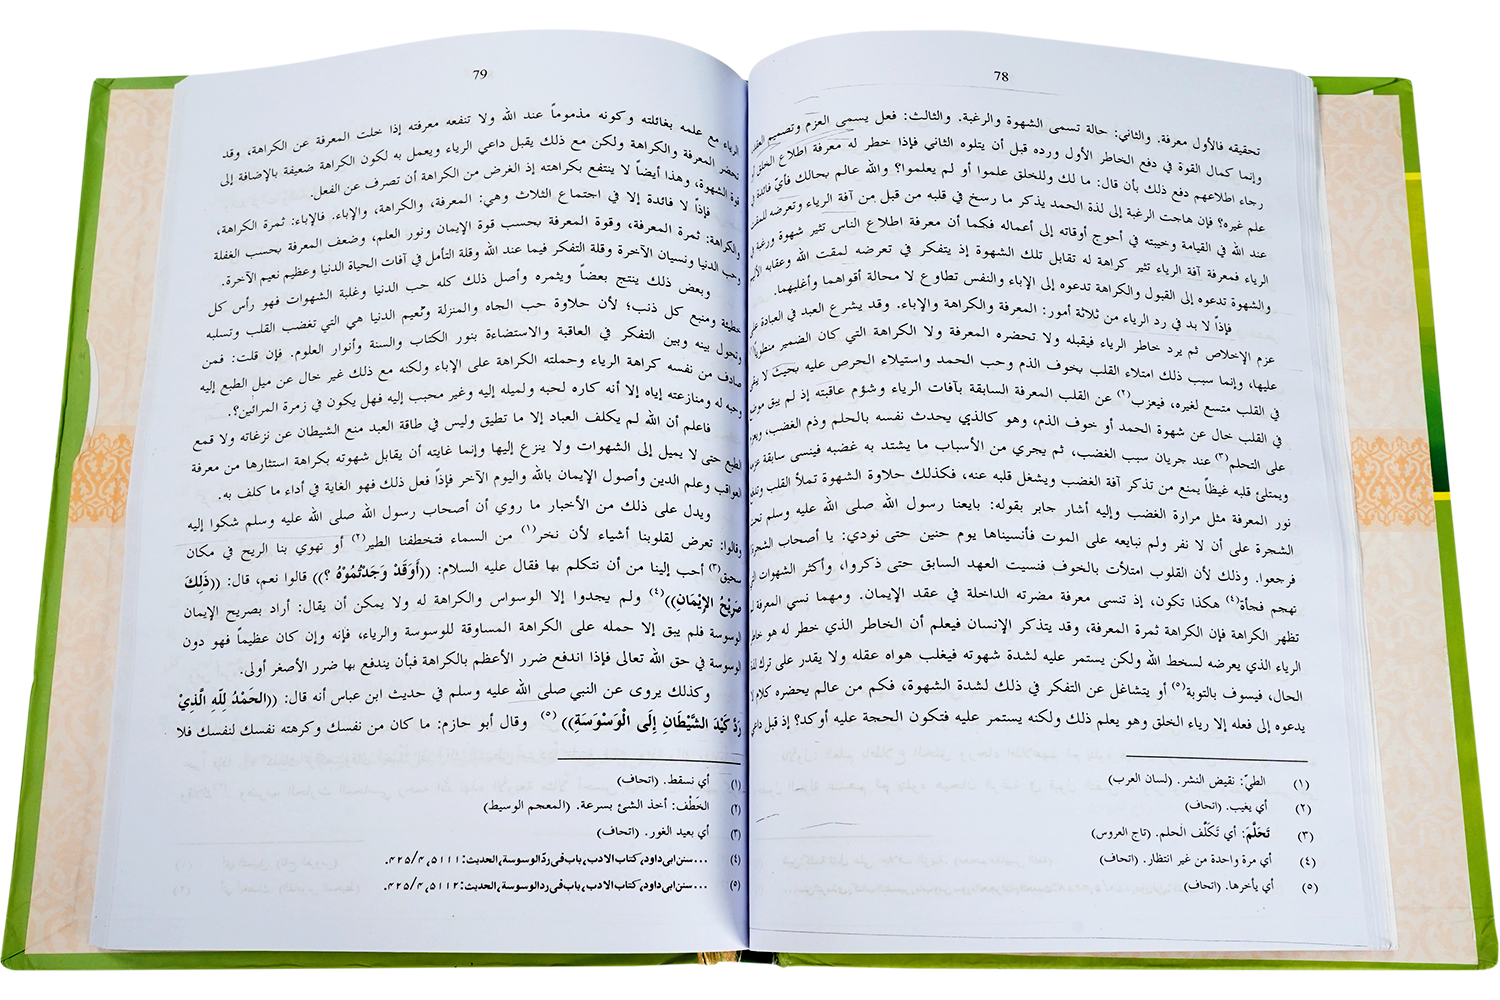 78
تحقيقه فالأول معرفة. والثاني: حالة تسمى الشهوة والرغبة. والثالث: فعل يسمى العزم وتصميم
وإنما كمال القوة في دفع الخاطر الأول ورده قبل أن يتلوه الثاني فإذا خطر له معرفة اطلاع الخلق
رجاء اطلاعهم دفع ذلك بأن قال: ما لك وللخلق علموا أو لم يعلموا؟ والله عالم بحالك فأيّ فائدة في
علم غيره؟ فإن هاجت الرغبة إلى لذة الحمد يذكر ما رسخ في قلبه من قبل من آفة الرياء وتعرضه للمقت
عند الله في القيامة وخيبته في أحوج أوقاته إلى أعماله فكما أن معرفة اطلاع الناس تثير شهوة ورغبة في
الرياء فمعرفة آفة الرياء تثير كراهة له تقابل تلك الشهوة إذ يتفكر في تعرضه لمقت الله وعقابه
والشهوة تدعوه إلى القبول والكراهة تدعوه إلى الإباء والنفس تطاوع لا محالة أقواهما وأغلبهما.
فإذاً لا بد في رد الرياء من ثلاثة أمور: المعرفة والكراهة والإباء. وقد يشرع العبد في العبادة على
عزم الإخلاص ثم يرد خاطر الرياء فيقبله ولا تحضره المعرفة ولا الكراهة التي كان الضمير منطوياً(١)
عليها، وإنما سبب ذلك امتلاء القلب بخوف الذم وحب الحمد واستيلاء الحرص عليه بحيث لا
في القلب متسع لغيره، فيعزب(٢) عن القلب المعرفة السابقة بآفات الرياء وشؤم عاقبته إذ لم يبق
في القلب خال عن شهوة الحمد أو خوف الذم، وهو كالذي يحدث نفسه بالحلم وذم الغضب،
على التحلم(٣) عند جريان سبب الغضب، ثم يجري من الأسباب ما يشتد به غضبه فينسى سابقة
ويمتلئ قلبه غيظاً يمنع من تذكر آفة الغضب ويشغل قلبه عنه، فكذلك حلاوة الشهوة تملأ القلب
نور المعرفة مثل مرارة الغضب وإليه أشار جابر بقوله: بايعنا رسول الله صلى الله عليه وسلم تحت
الشجرة على أن لا نفر ولم نبايعه على الموت فأنسيناها يوم حنين حتى نودي: يا أصحاب الشجرة
فرجعوا. وذلك لأن القلوب امتلأت بالخوف فنسيت العهد السابق حتى ذكروا، وأكثر الشهوات
تهجم فجأة(٤) هكذا تكون، إذ تنسى معرفة مضرته الداخلة في عقد الإيمان. ومهما نسي المعرفة لم
تظهر الكراهة فإن الكراهة ثمرة المعرفة، وقد يتذكر الإنسان فيعلم أن الخاطر الذي خطر له هو
الرياء الذي يعرضه لسخط الله ولكن يستمر عليه لشدة شهوته فيغلب هواه عقله ولا يقدر على ترك
الحال، فيسوف بالتوبة(٥) أو يتشاغل عن التفكر في ذلك لشدة الشهوة، فكم من عالم يحضره كلام لا
يدعوه إلى فعله إلا رياء الخلق وهو يعلم ذلك ولكنه يستمر عليه فتكون الحجة عليه أوكد؟ إذ قبل داعي
(١) الطيّ: نقيض النشر. (لسان العرب)
(٢) أي يغيب. (اتحاف)
(٣) تَحَلَّمَ: أي تَكَلَّفَ الحلم. (تاج العروس)
(٤) أي مرة واحدة من غير انتظار. (اتحاف)
(٥) أي يأخرها. (اتحاف)
79
الرياء مع علمه بغائلته وكونه مذموماً عند الله ولا تنفعه معرفته إذا خلت المعرفة عن الكراهة، وقد
تحضر المعرفة والكراهة ولكن مع ذلك يقبل داعي الرياء ويعمل به لكون الكراهة ضعيفة بالإضافة إلى
قوة الشهوة، وهذا أيضاً لا ينتفع بكراهته إذ الغرض من الكراهة أن تصرف عن الفعل.
فإذاً لا فائدة إلا في اجتماع الثلاث وهي: المعرفة، والكراهة، والإباء. فالإباء: ثمرة الكراهة،
والكراهة: ثمرة المعرفة، وقوة المعرفة بحسب قوة الإيمان ونور العلم، وضعف المعرفة بحسب الغفلة
وحب الدنيا ونسيان الآخرة وقلة التفكر فيما عند الله وقلة التأمل في آفات الحياة الدنيا وعظيم نعيم الآخرة.
وبعض ذلك ينتج بعضاً ويثمره وأصل ذلك كله حب الدنيا وغلبة الشهوات فهو رأس كل
خطيئة ومنبع كل ذنب؛ لأن حلاوة حب الجاه والمنزلة ونُعيم الدنيا هي التي تغضب القلب وتسلبه
وتحول بينه وبين التفكر في العاقبة والاستضاءة بنور الكتاب والسنة وأنوار العلوم. فإن قلت: فمن
صادف من نفسه كراهة الرياء وحملته الكراهة على الإباء ولكنه مع ذلك غير خال عن ميل الطبع إليه
وحبه له ومنازعته إياه إلا أنه كاره لحبه ولميله إليه وغير محبب إليه فهل يكون في زمرة المرائين؟.
فاعلم أن الله لم يكلف العباد إلا ما تطيق وليس في طاقة العبد منع الشيطان عن نزغاته ولا قمع
الطبع حتى لا يميل إلى الشهوات ولا ينزع إليها وإنما غايته أن يقابل شهوته بكراهة استثارها من معرفة
العواقب وعلم الدين وأصول الإيمان بالله واليوم الآخر فإذاً فعل ذلك فهو الغاية في أداء ما كلف به.
ويدل على ذلك من الأخبار ما روي أن أصحاب رسول الله صلى الله عليه وسلم شكوا إليه
وقالوا: تعرض لقلوبنا أشياء لأن نخر(١) من السماء فتخطفنا الطير(٢) أو تهوي بنا الريح في مكان
سحيق(٣) أحب إلينا من أن نتكلم بها فقال عليه السلام: ((أَوَقَدْ وَجَدْتُمُوْهُ ؟)) قالوا نعم، قال: ((ذَلِكَ
صَرِيْحُ الإِيْمَانِ))(٤) ولم يجدوا إلا الوسواس والكراهة له ولا يمكن أن يقال: أراد بصريح الإيمان
الوسوسة فلم يبق إلا حمله على الكراهة المساوقة للوسوسة والرياء، فإنه وإن كان عظيماً فهو دون
الوسوسة في حق الله تعالى فإذا اندفع ضرر الأعظم بالكراهة فبأن يندفع بها ضرر الأصغر أولى.
وكذلك يروى عن النبي صلى الله عليه وسلم في حديث ابن عباس أنه قال: ((الحَمْدُ لِلّهِ الَّذِيْ
رَدَّ كَيْدَ الشَّيْطَانِ إِلَى الْوَسْوَسَةِ))(٥) وقال أبو حازم: ما كان من نفسك وكرهته نفسك لنفسك فلا
(١) أي نسقط. (اتحاف)
(٢) الخَطْف: أخذ الشئ بسرعة. (المعجم الوسيط)
(٣) أي بعيد الغور. (اتحاف)
(٤) ...سنن ابی داود، کتاب الادب، باب فی ردّ الوسوسة، الحدیث: ۵۱۱۱، ۴/۴۲۵.
(٥) ...سنن ابی داود، کتاب الادب، باب فی رد الوسوسة، الحدیث: ۵۱۱۲، ۴/۴۲۵.